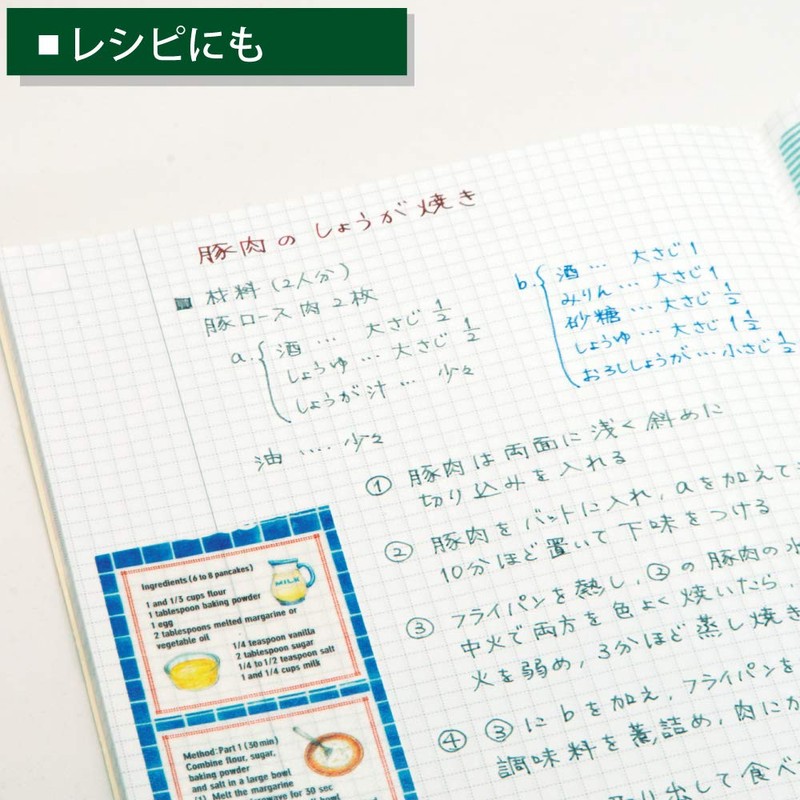 ■レシピにも
豚肉のしょうが焼き
■ 材料(2人分)
豚ロース肉 2枚
a. 酒 … 大さじ 1/2
しょうゆ … 大さじ 1/2
しょうが汁 … 少々
油 …. 少々
b. 酒 … 大さじ 1
みりん … 大さじ 1
砂糖 … 大さじ 1/2
しょうゆ … 大さじ 1 1/2
おろししょうが … 小さじ 1/2
① 豚肉は両面に浅く斜めに
切り込みを入れる
② 豚肉をバットに入れ, aを加えて
10分ほど置いて下味をつける
③ フライパンを熱し, ②の豚肉の
中火で両方を色よく焼いたら,
火を弱め, 3分ほど蒸し焼き
④ ③にbを加え, フライパンを
調味料を煮詰め, 肉にか
取り出して食べ
Ingredients (6 to 8 pancakes)
1 and 1/3 cups flour
1 tablespoon baking powder
1 egg
2 tablespoons melted margarine or
vegetable oil
1/4 teaspoon vanilla
2 tablespoon sugar
1/4 to 1/2 teaspoon salt
1 and 1/4 cups milk
MILK
Method:Part 1 (30 min)
Combine flour, sugar,
baking powder
and salt in a large bowl
(1) Melt the margarine
for 30 sec